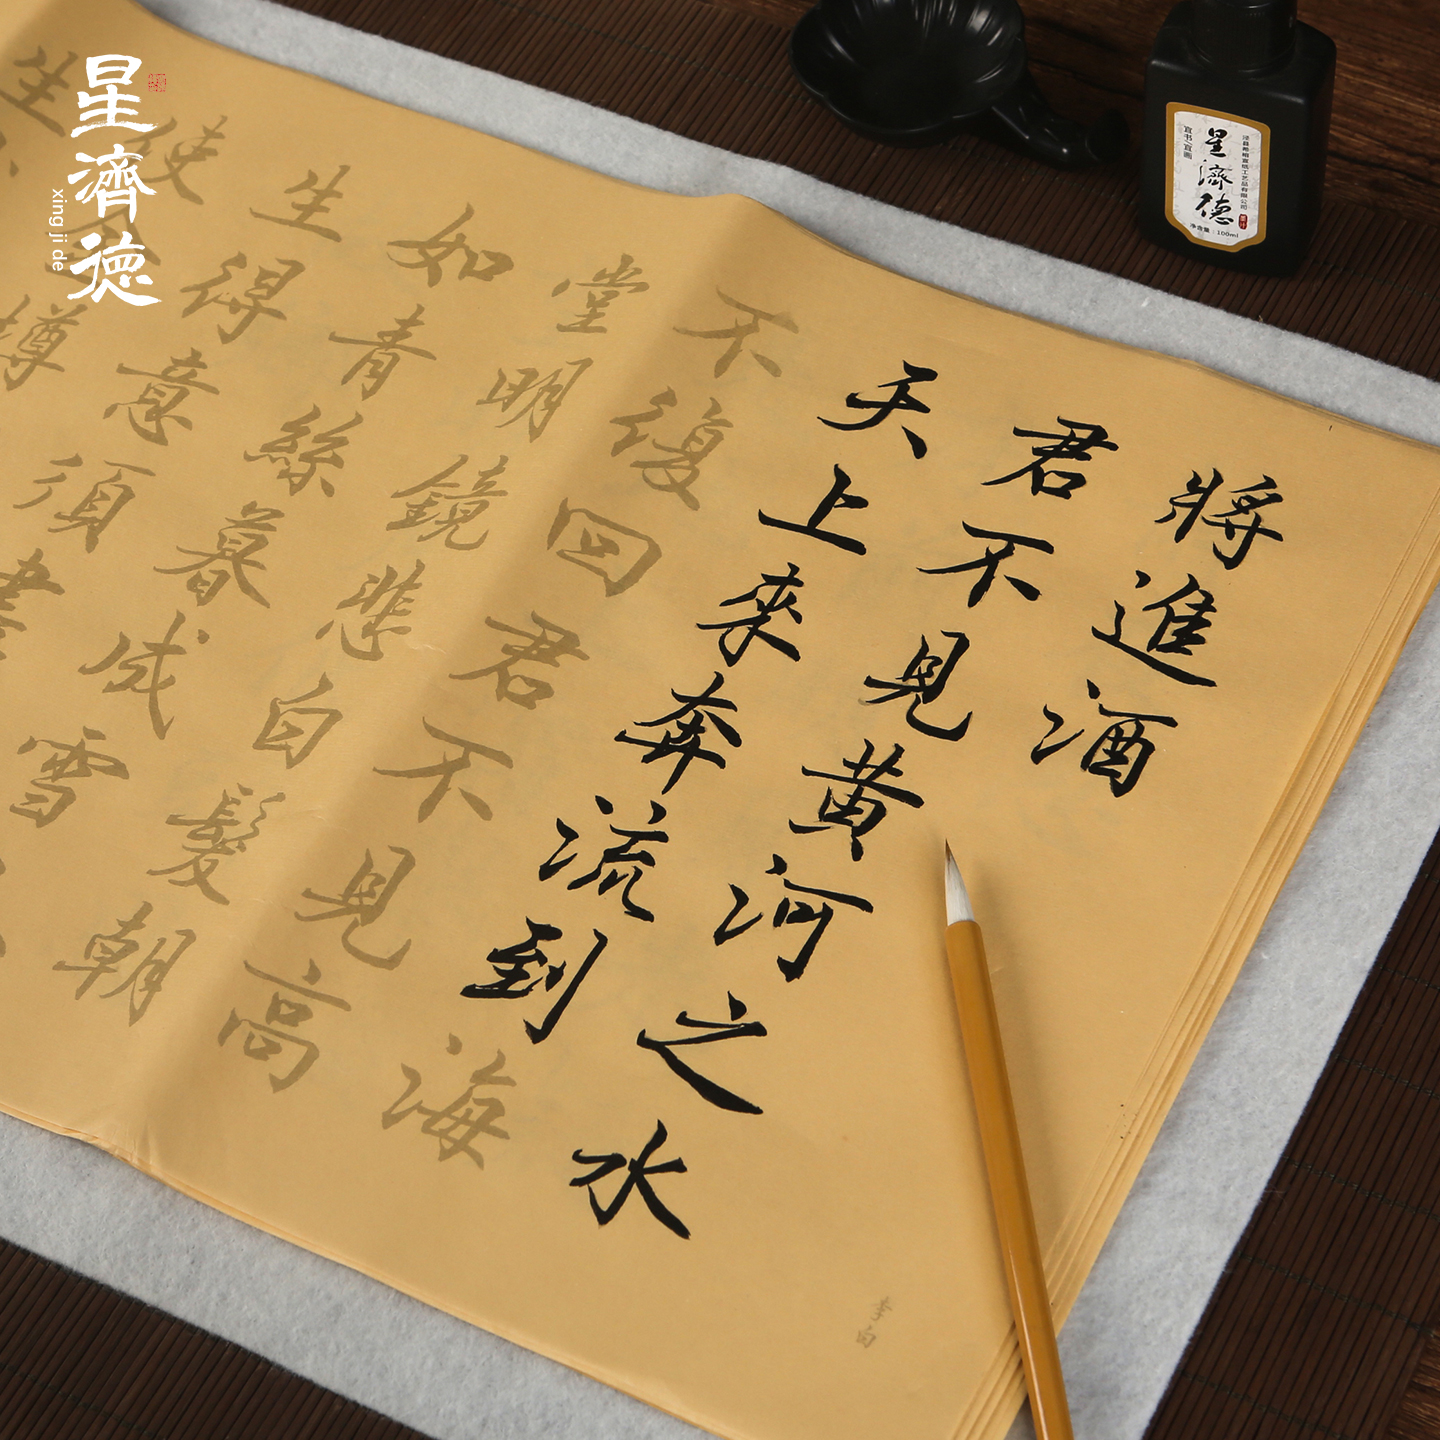 星濟德
xing ji de
將進酒
君不見黄河之水
天上来奔流到海
不復回君不見高
堂明鏡悲白髮朝
如青絲暮成雪
生得意須盡
使金樽
生
李白
星濟德
宜书/宜画
净含量:100ml